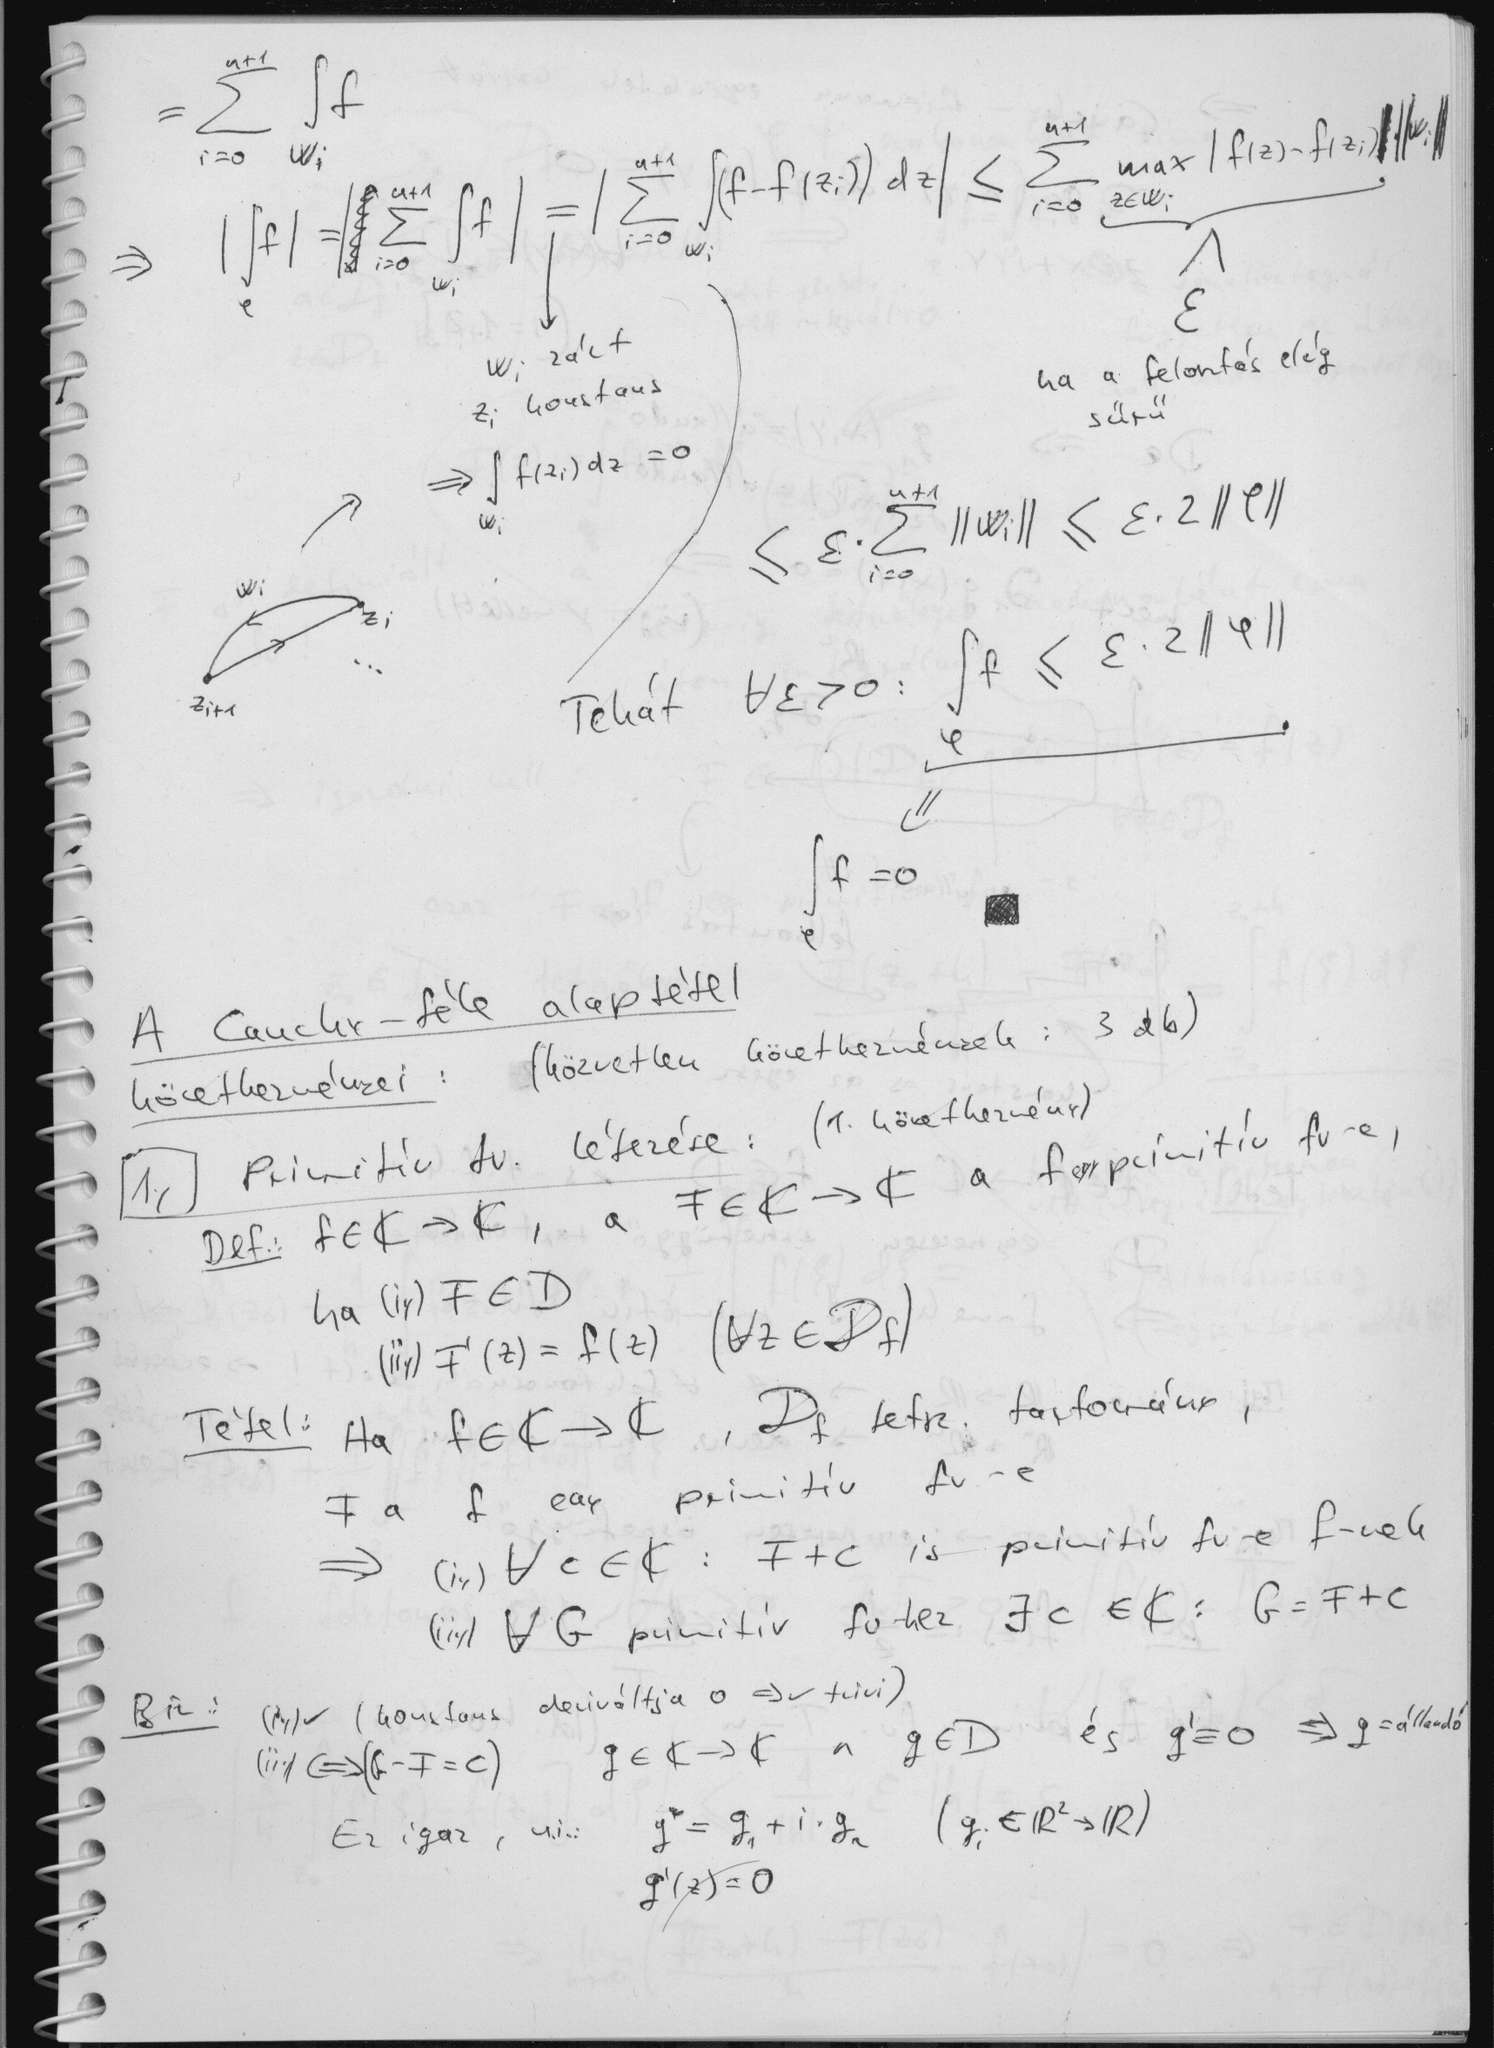 = ∑_{i=0}^{n+1} ∫_{ψ_i} f
⇒ |∫_φ f| = |∑_{i=0}^{n+1} ∫_{ψ_i} f| = |∑_{i=0}^{n+1} ∫_{ψ_i} (f-f(z_i)) dz| ≤ ∑_{i=0}^{n+1} max_{z∈ψ_i} |f(z)-f(z_i)| · ||ψ_i||
∧
ε
ha a felontás elég
sűrű
ψ_i zárt
z_i konstans
⇒ ∫_{ψ_i} f(z_i) dz = 0
≤ ε · ∑_{i=0}^{n+1} ||ψ_i|| ≤ ε · 2 ||φ||
ψ_i
z_i
...
z_{i+1}
Tehát ∀ε>0: ∫_φ f ≤ ε · 2 ||φ||
⇓
∫_φ f = 0 ■
A Cauchy-féle alaptétel
következményei: (közvetlen következmények: 3 db)
1, Primitív fv. létezése: (1. következmény)
Def.: f∈ℂ→ℂ, a F∈ℂ→ℂ a f primitív fv-e,
ha (i,) F∈D
(ii,) F'(z) = f(z) (∀z∈D_f)
Tétel: Ha f∈ℂ→ℂ, D_f tetsz. tartomány,
F a f egy primitív fv-e
⇒ (i,) ∀c∈ℂ: F+c is primitív fv-e f-nek
(ii,) ∀G primitív fv-hez ∃c∈ℂ: G=F+c
Biz.: (i,) ✓ (konstans deriváltja 0 ⇒ ✓ trivi)
(ii,) ⇔ (G-F=c) g∈ℂ→ℂ ∧ g∈D és g'≡0 ⇒ g=állandó
Ez igaz, ui.: g = g_1 + i·g_2 (g_i∈ℝ²→ℝ)
g'(z)=0